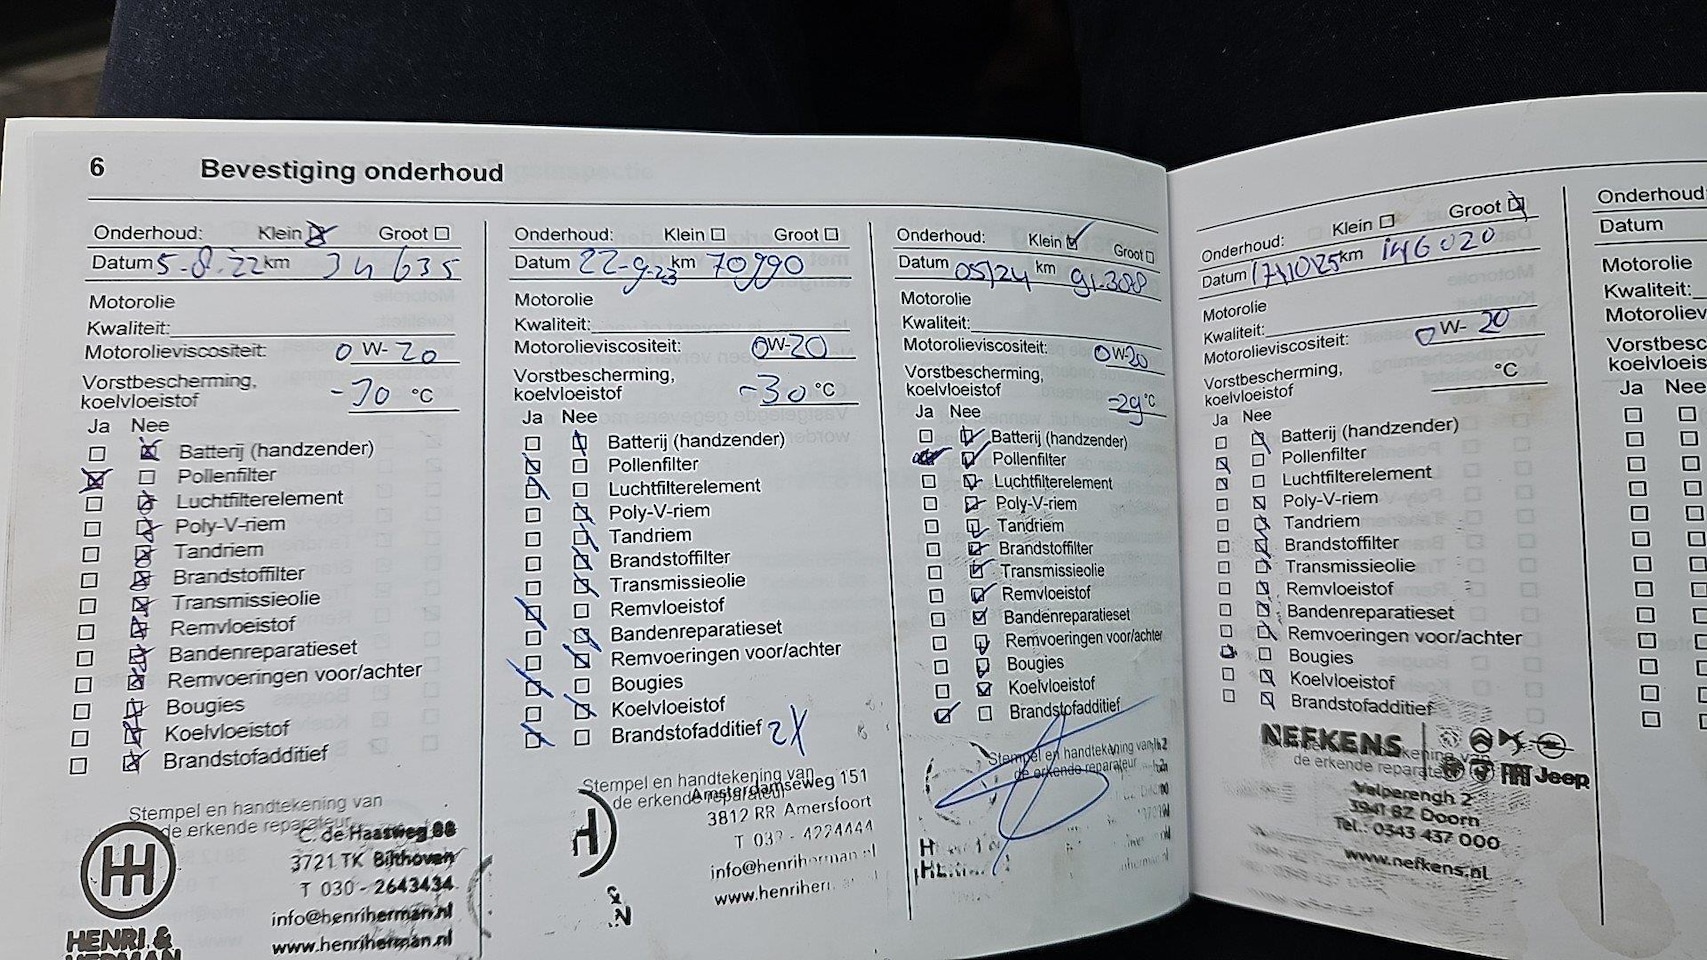 6 Bevestiging onderhoud
Onderhoud: Klein Groot
Datum 5-8-22 km 34 635
Motorolie
Kwaliteit:
Motorolieviscositeit: 0 W- 20
Vorstbescherming,
koelvloeistof -30 °C
Ja Nee
Batterij (handzender)
Pollenfilter
Luchtfilterelement
Poly-V-riem
Tandriem
Brandstoffilter
Transmissieolie
Remvloeistof
Bandenreparatieset
Remvoeringen voor/achter
Bougies
Koelvloeistof
Brandstofadditief
Stempel en handtekening van
de erkende reparateur
C. de Haasweg 88
3721 TK Bilthoven
T 030 - 2643434
info@henriherman.nl
www.henriherman.nl
HENRI &
HERMAN
Onderhoud: Klein Groot
Datum 22-9-23 km 70990
Motorolie
Kwaliteit:
Motorolieviscositeit: 0W-20
Vorstbescherming,
koelvloeistof -30 °C
Ja Nee
Batterij (handzender)
Pollenfilter
Luchtfilterelement
Poly-V-riem
Tandriem
Brandstoffilter
Transmissieolie
Remvloeistof
Bandenreparatieset
Remvoeringen voor/achter
Bougies
Koelvloeistof
Brandstofadditief 2X
Stempel en handtekening van
de erkende reparateur
Amsterdamseweg 151
3812 RR Amersfoort
T 033 - 4224444
info@henriherman.nl
www.henriher
Onderhoud: Klein Groot
Datum 05/24 km 91.308
Motorolie
Kwaliteit:
Motorolieviscositeit: 0W-20
Vorstbescherming,
koelvloeistof -29 °C
Ja Nee
Batterij (handzender)
Pollenfilter
Luchtfilterelement
Poly-V-riem
Tandriem
Brandstoffilter
Transmissieolie
Remvloeistof
Bandenreparatieset
Remvoeringen voor/achter
Bougies
Koelvloeistof
Brandstofadditief
Stempel en handtekening van
de erkende reparateur
Onderhoud: Klein Groot
Datum 17/1025 km 146020
Motorolie
Kwaliteit:
Motorolieviscositeit: 0 W- 20
Vorstbescherming,
koelvloeistof °C
Ja Nee
Batterij (handzender)
Pollenfilter
Luchtfilterelement
Poly-V-riem
Tandriem
Brandstoffilter
Transmissieolie
Remvloeistof
Bandenreparatieset
Remvoeringen voor/achter
Bougies
Koelvloeistof
Brandstofadditief
NEFKENS
de erkende reparateur
FIAT Jeep
Velperengh 2
3941 BZ Doorn
Tel.: 0343 437 000
www.nefkens.nl
Onderhoud:
Datum
Motorolie
Kwaliteit:
Motoroliev
Vorstbesc
koelvloeis
Ja Nee